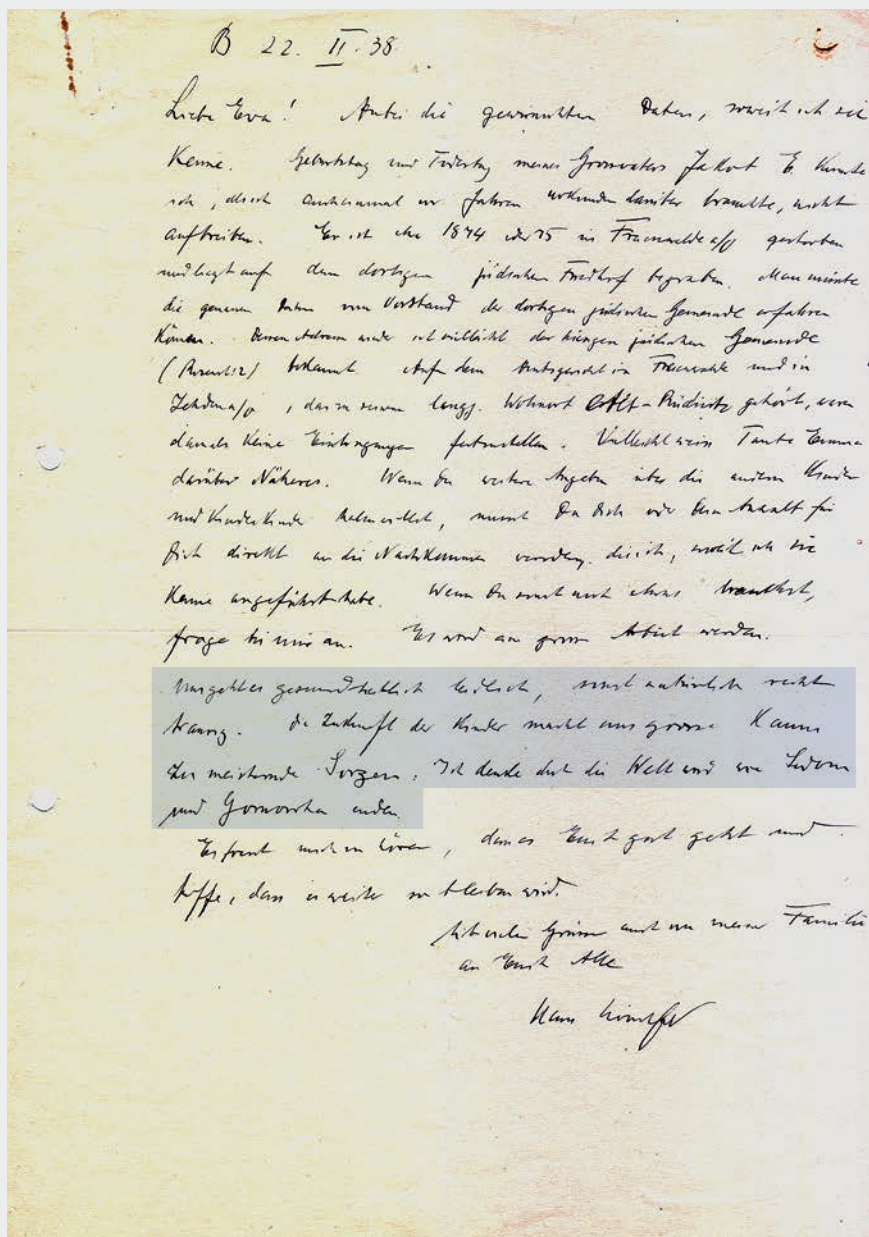 B 22. II. 38.
Liebe Eva! Anbei die gewünschten Daten, soweit ich sie
kenne. Geburtstag und Todestag meines Grossvaters Jakob E. konnte
ich, als ich auch einmal vor Jahren Urkunden darüber brauchte, nicht
auftreiben. Er ist ca 1874 oder 75 in Freienwalde a/O gestorben
und liegt auf dem dortigen jüdischen Friedhof begraben. Man müsste
die genauen Daten vom Vorstand der dortigen jüdischen Gemeinde erfahren
können. Deren Adresse ist vielleicht der hiesigen jüdischen Gemeinde
bekannt. Auf dem Amtsgericht in Freienwalde und in
Zehden a/O, das zu seinem langj. Wohnort Alt-Rüdnitz gehört, waren
damals keine Eintragungen festzustellen. Vielleicht weiss Tante Emma
darüber Näheres. Wenn Du weitere Angaben über die anderen Kinder
und Kindeskinder haben willst, musst Du Dich oder Dein Anwalt für
Dich direkt an die Nachkommen wenden, die ich, soweit ich sie
kenne angeführt habe. Wenn Du sonst noch etwas brauchst,
frage bei mir an. Es wird eine grosse Arbeit werden.
Uns geht es gesundheitlich leidlich, sonst natürlich recht
traurig. Die Zukunft der Kinder macht uns grosse kaum
zu meisternde Sorgen. Ich denke doch die Welt wird wie Sodom
und Gomorrha enden.
Es freut mich zu hören, dass es Euch gut geht und
hoffe, dass es weiter so bleiben wird.
Mit vielen Grüssen auch von meiner Familie
an Euch Alle
Hans